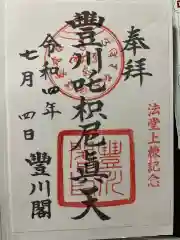 奉拝
法堂上棟記念
豊川吒枳尼眞天
令和四年
七月四日
豊川閣